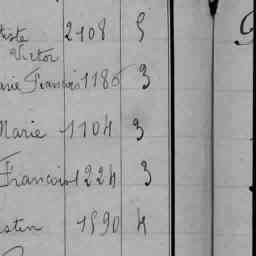 tiste 2108 5
Victor
arie François 1186 3
Marie 1104 3
François 1224 3
stin 1890 4